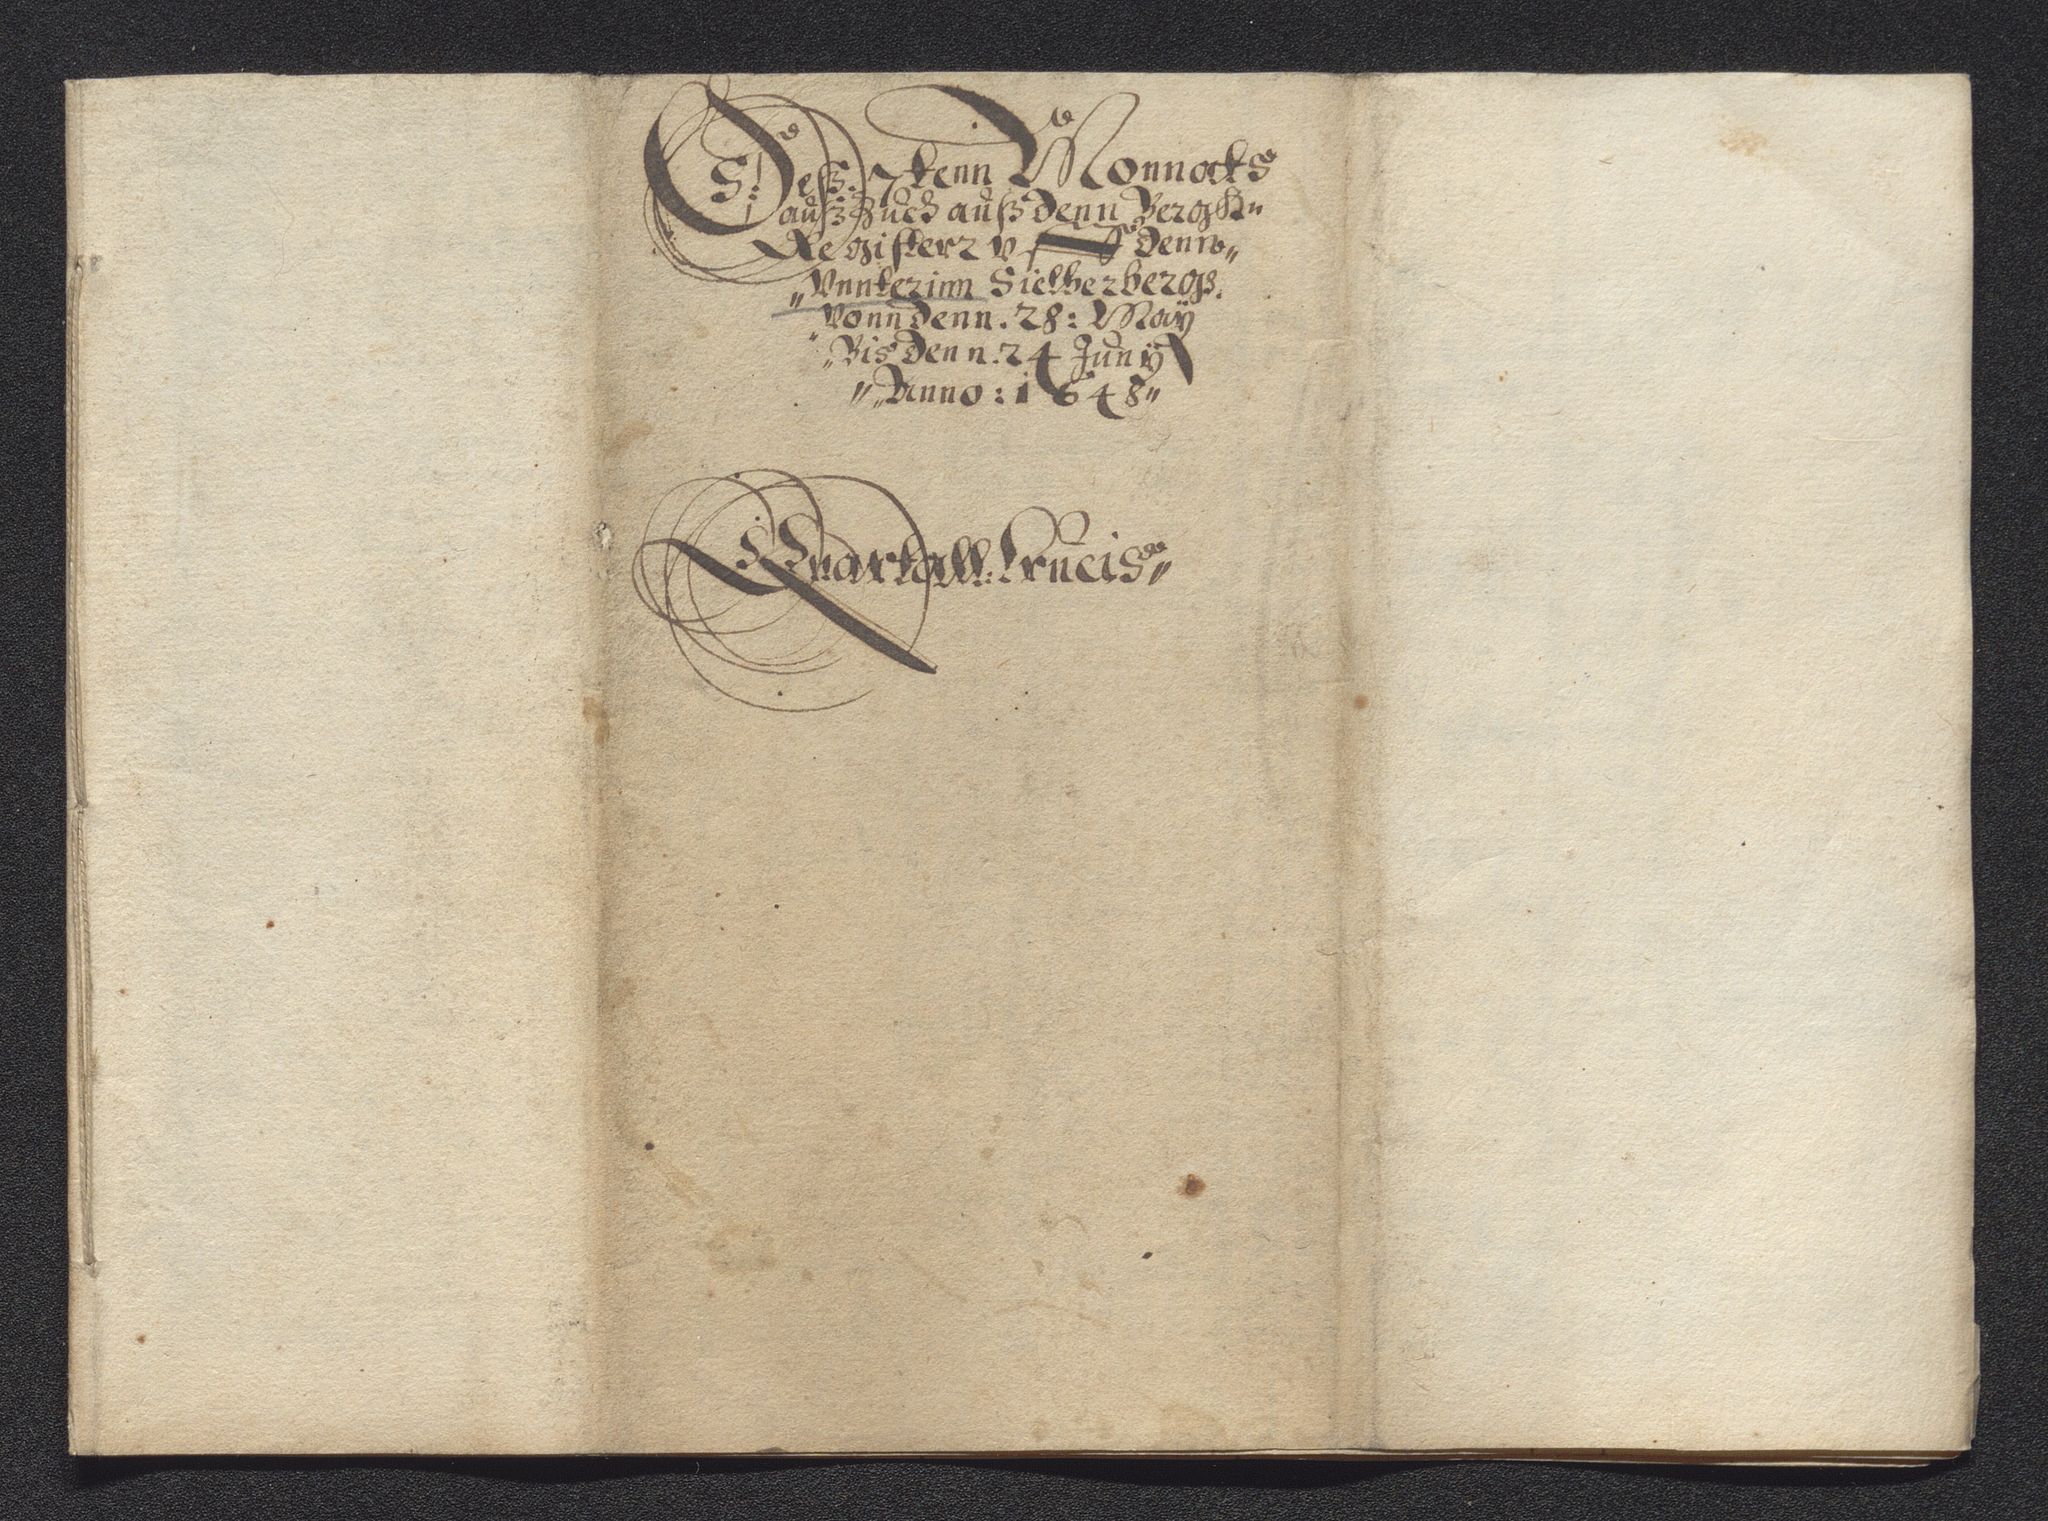 Deß. 7 tenn Monnats
außzuch auß denn Bergk„
Register v denn„
„Vnnterinn Sielberbergs.
Vonn denn. 28: May
„Bis denn. 24 Juny
„„Anno: 1648„
Quartall: Crucis„